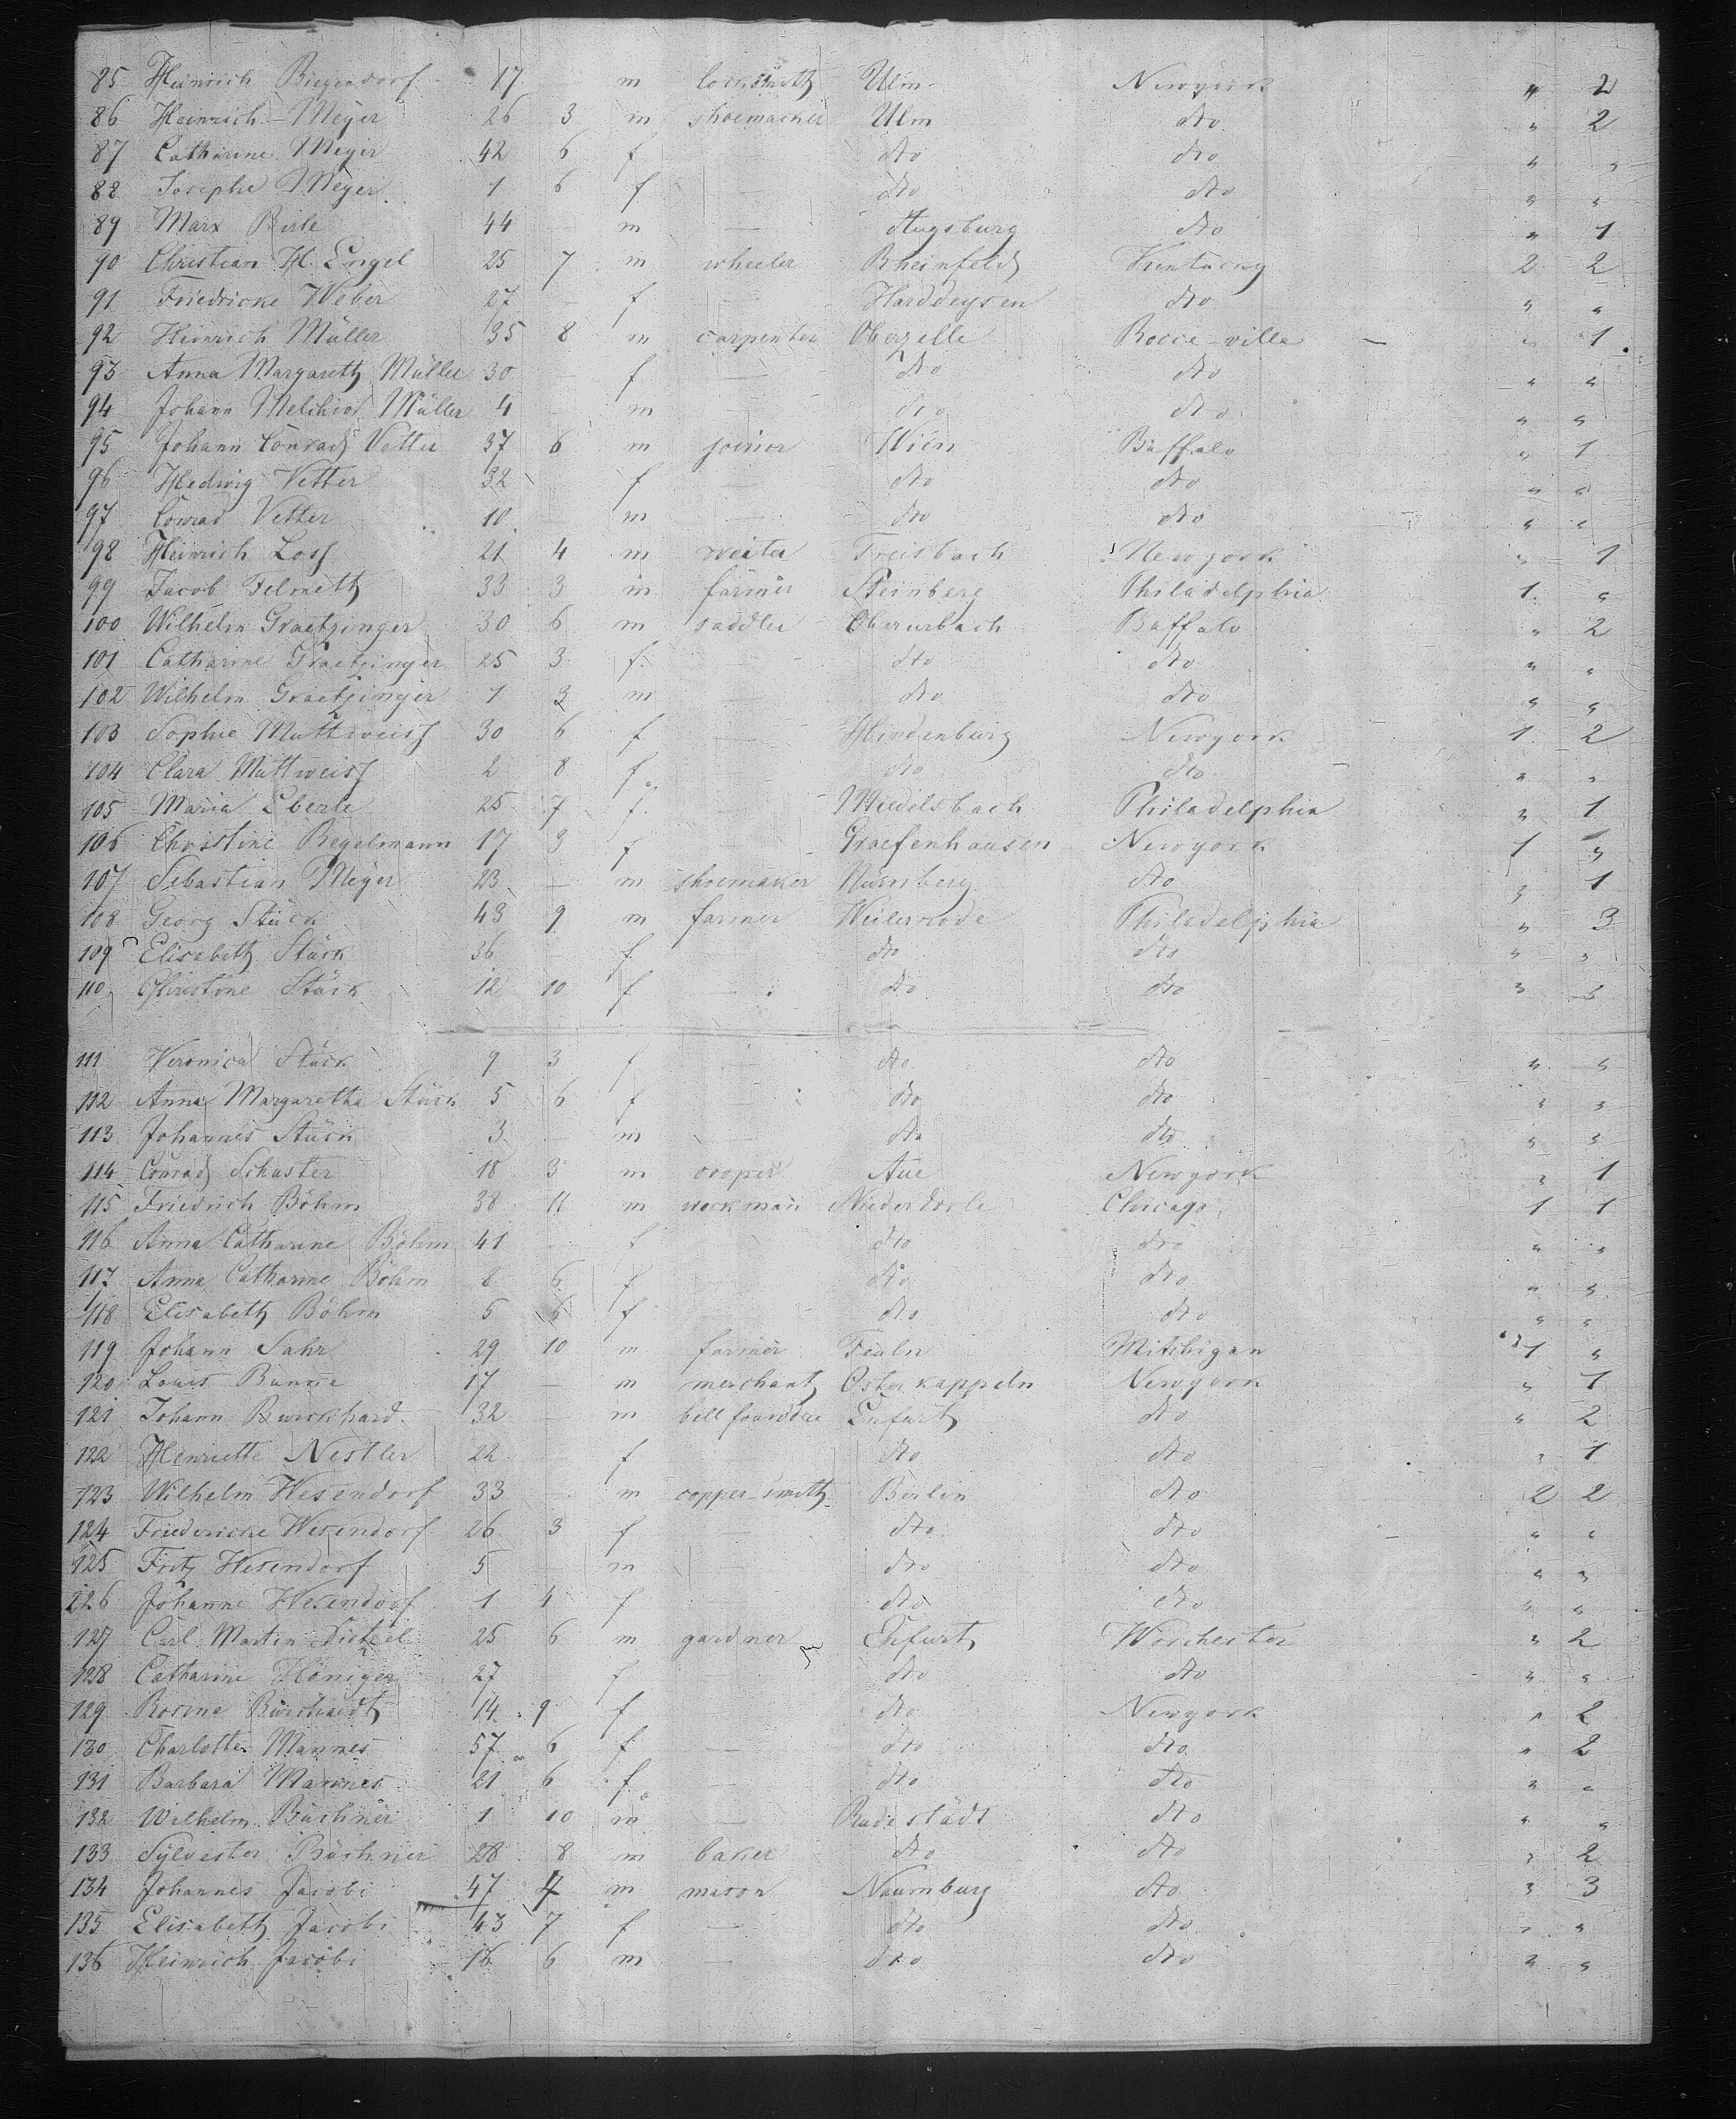 85 Heinrich Biegendorf 17 — m locksmith Ulm Newyork " 2
86 Heinrich Meyer 26 3 m shoemacker Ulm dto " 2
87 Catharine Meyer 42 6 f — dto dto " "
88 Josephe Meyer 1 6 f — dto dto " "
89 Marx Birle 44 — m — Augsburg dto " 1
90 Christian H. Engel 25 7 m wheeler Rheinfeld Kentucky 2 2
91 Friedricke Weber 27 — f — dto " "
92 Heinrich Müller 35 8 m carpenter Oberzelle Rocce-ville " 1
93 Anna Margareth Müller 30 — f — dto dto " "
94 Johann Melchior Müller 4 — m dto dto " "
95 Johann Conrad Vetter 37 6 m joinor Wien Buffalo " 1
96 Hedwig Vetter 32 f — dto dto " "
97 Conrad Vetter 10 — m — dto dto " "
98 Heinrich Loss 21 4 m Treisbach Newyork " 1
99 Jacob Felmeth 33 3 m farmer Steinberg Philadelphia 1 "
100 Wilhelm Graetzinger 30 6 m saddler Oberurbach Buffalo " 2
101 Catharine Graetzinger 25 3 f — dto dto " "
102 Wilhelm Graetzinger 1 3 m — dto dto " "
103 Sophie Muttweiss 30 6 f — Hindenburg Newyork 1 2
104 Clara Muttweiss 2 8 f dto dto " "
105 Maria Eberle 25 7 f — Miedelsbach Philadelphia " 1
106 Christine Regelmann 17 3 f — Graefenhausen Newyork 1 "
107 Sebastian Meyer 23 — m shoemaker Nürnberg dto " 1
108 Georg Stück 43 9 m farmer Weilerrode Philadelphia " 3
109 Elisabeth Stück 36 — f dto dto " "
110 Christine Stück 12 10 f — dto dto " "
111 Veronica Stück 9 3 f — dto dto " "
112 Anna Margaretha Stück 5 6 f — dto dto " "
113 Johannes Stück 3 — m — dto dto " "
114 Conrad Schuster 18 3 m cooper Aue Newyork " 1
115 Friedrich Böhm 38 11 m workman Niederdorla Chicago 1 1
116 Anna Catharine Böhm 41 — f dto dto " "
117 Anna Catharine Böhm 8 6 f — dto dto " "
118 Elisabeth Böhm 5 6 f dto dto " "
119 Johann Sahr 29 10 m farmer Mitchigan 1 "
120 Louis Bunne 17 — m merchant Osterkappeln Newyork " 1
121 Johann Burckhard 32 — m bell foundre Erfurt dto " 2
122 Henriette Nestler 22 — f dto dto " 1
123 Wilhelm Wesendorf 33 — m copper-smith Berlin dto 2 2
124 Friedericke Wesendorf 26 3 f — dto dto " "
125 Fritz Wesendorf 5 m — dto dto " "
126 Johanne Wesendorf 1 4 f — dto dto " "
127 Carl Martin Dietzel 25 6 m gardner Erfurt Worchester " 2
128 Catharine Höniger 27 — f — dto dto " "
129 Rosine Burchardt 14 9 f dto Newyork " 2
130 Charlotte Mannes 57 6 f — dto dto " 2
131 Barbara Mannes 21 6 f — dto dto " "
132 Wilhelm Büchner 1 10 m — Rudestädt dto " "
133 Sylvester Büchner 28 8 m baker dto dto " 2
134 Johannes Jacobi 47 4 m mason Naumburg dto " 3
135 Elisabeth Jacobi 43 7 f — dto dto " "
136 Heinrich Jacobi 16 6 m — dto dto " "